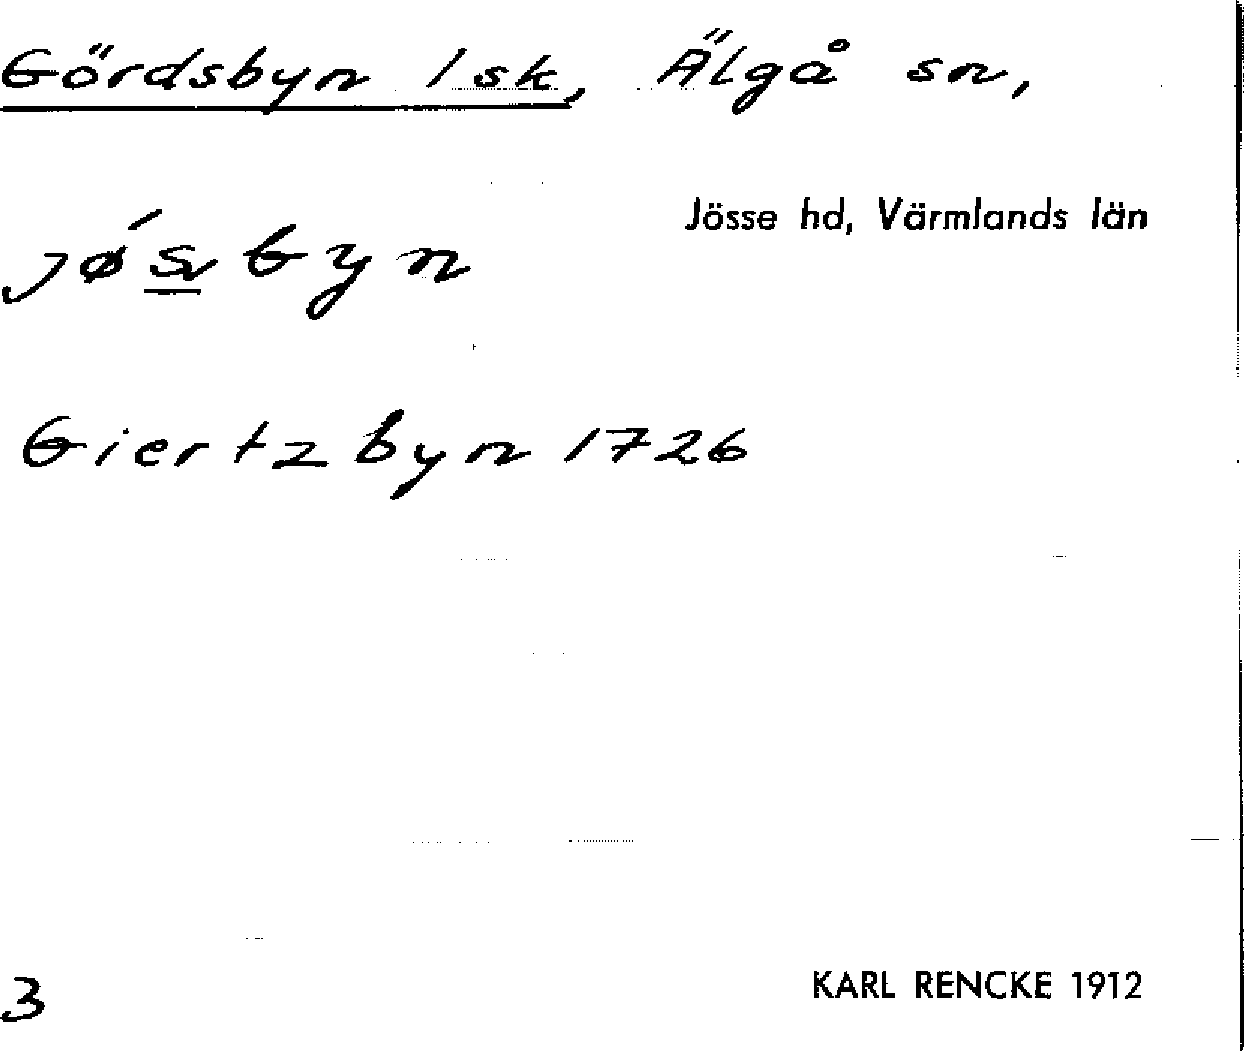 Gördsbyn 1 sk, Älgå sn,
Jösse hd, Värmlands län
jǿsbyn
Giertzbyn 1726
3
KARL RENCKE 1912